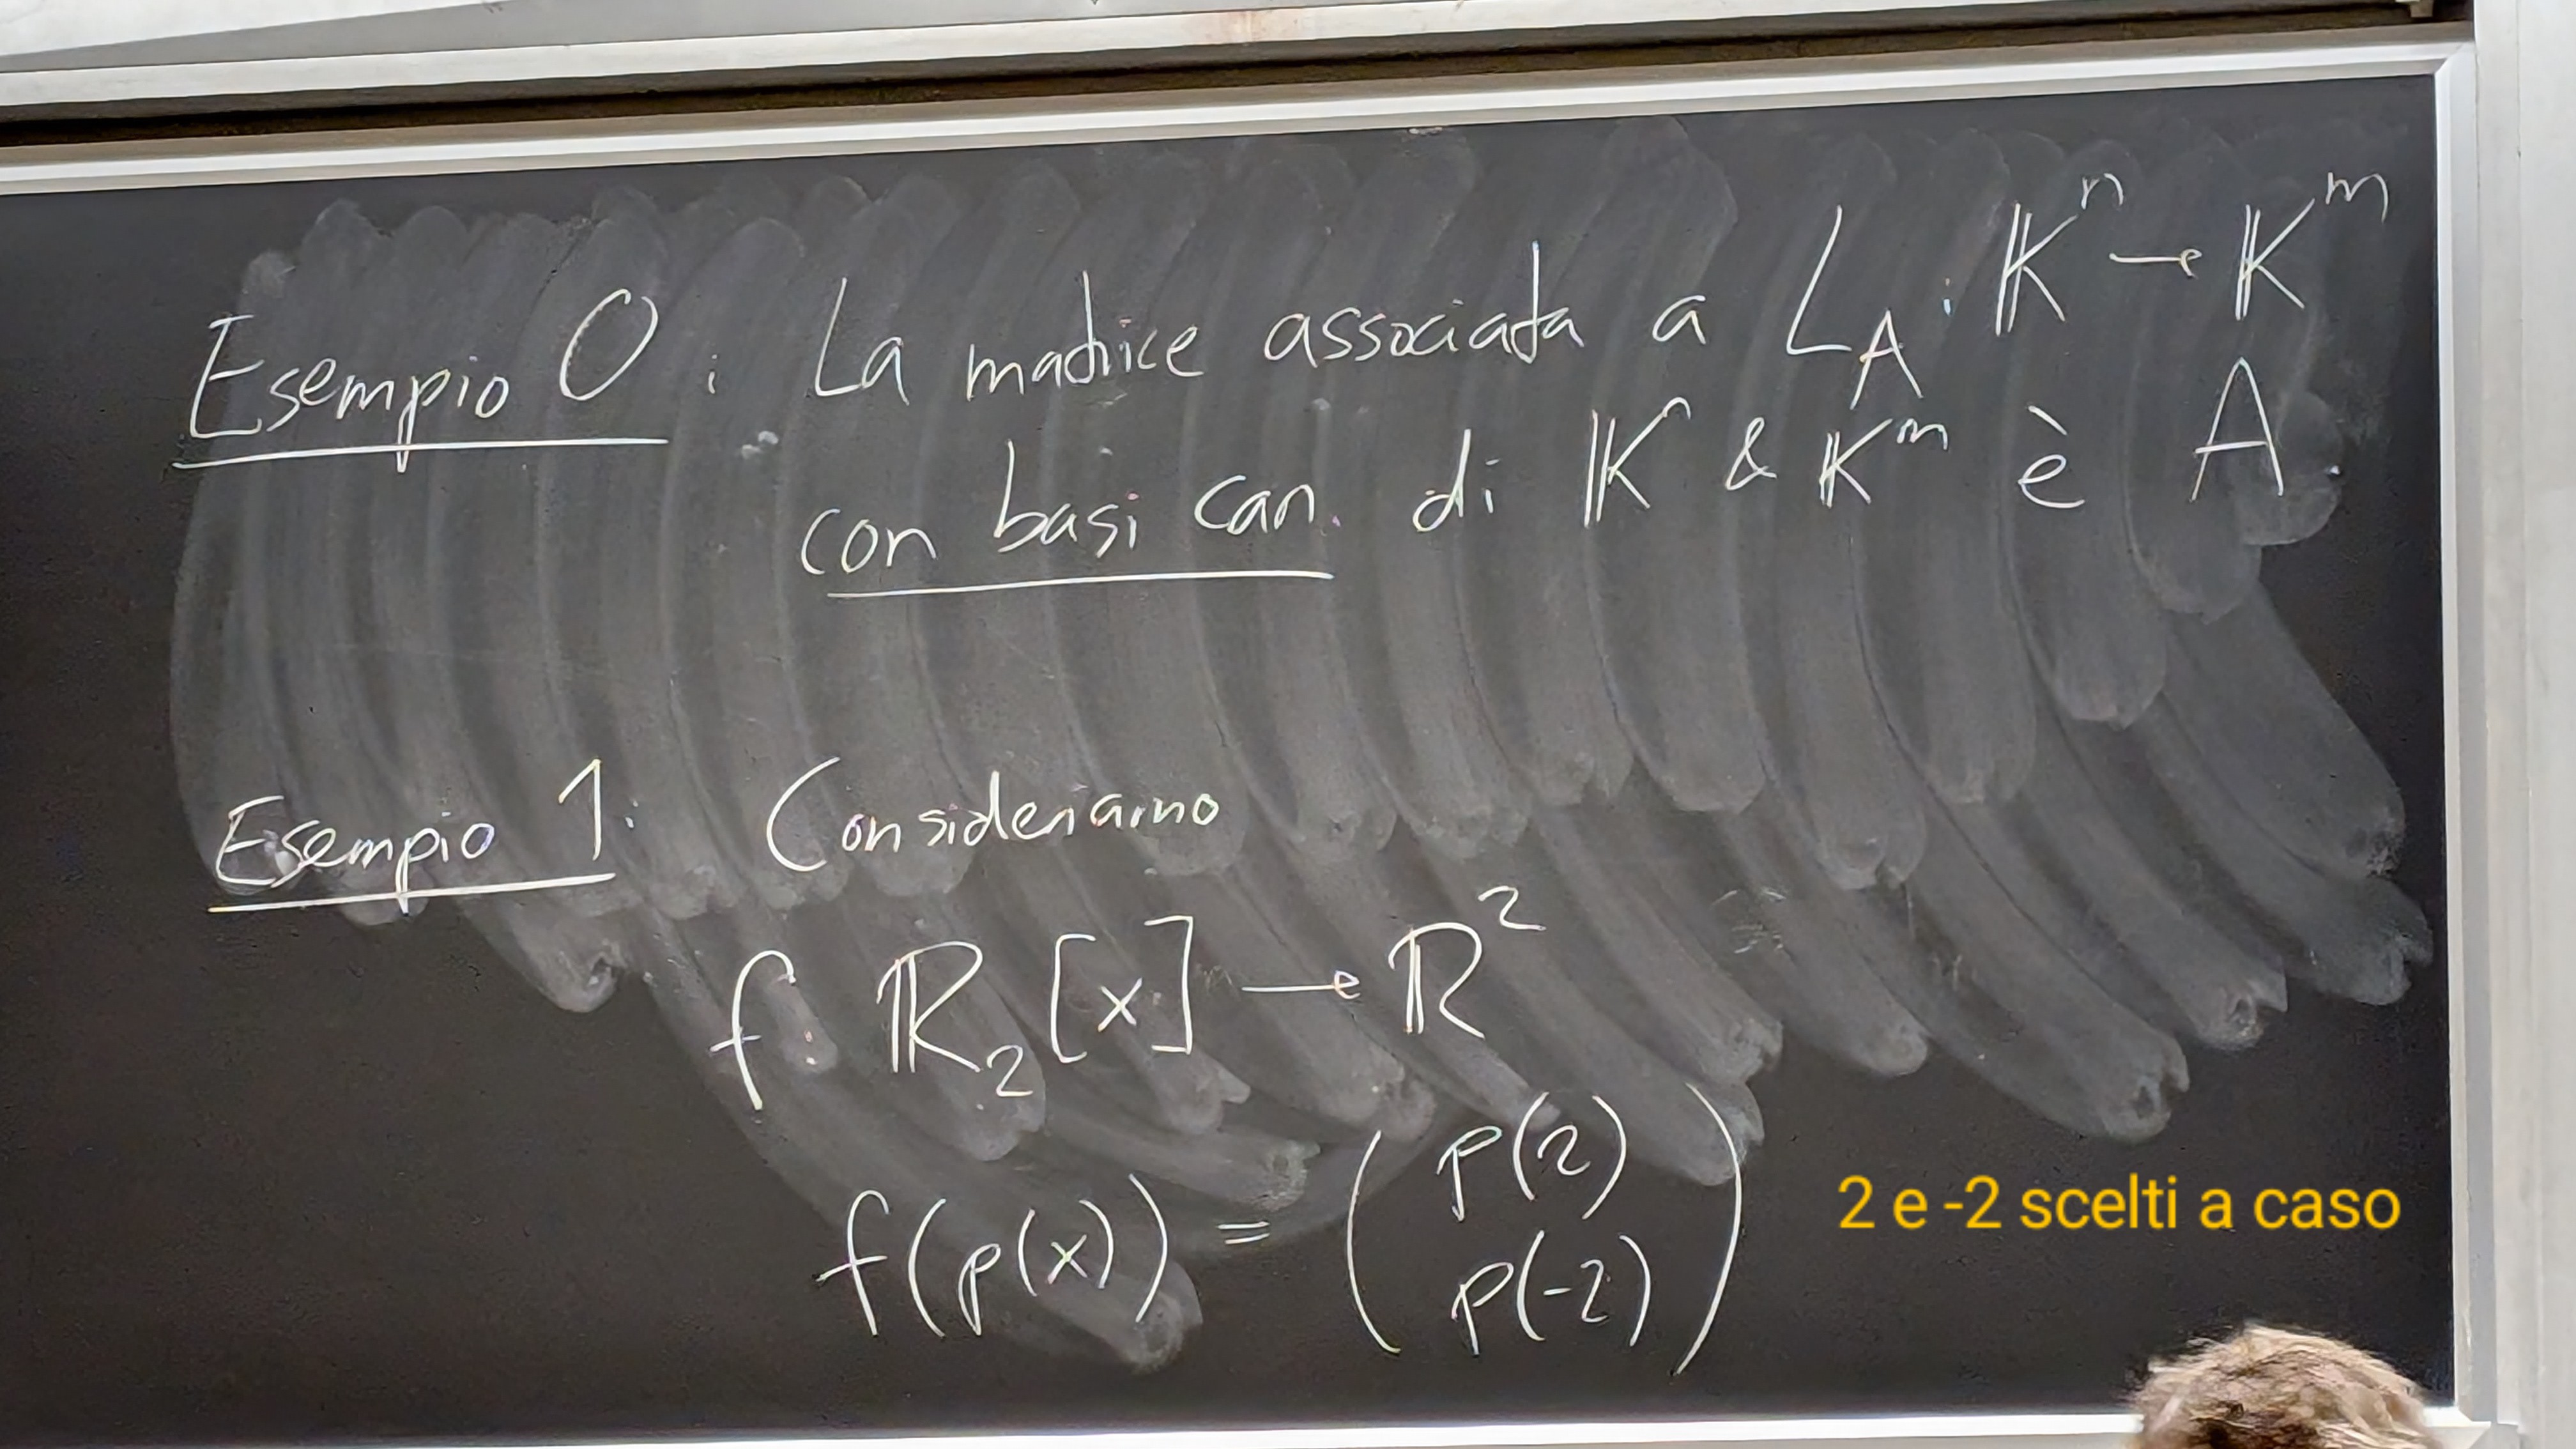 Esempio 0: La matrice associata a L_A: 𝕂^n → 𝕂^m
con basi can. di 𝕂^n & 𝕂^m è A
Esempio 1: Consideriamo
f: ℝ_2[x] → ℝ^2
f(p(x)) = ( p(2)
p(-2) )
2 e -2 scelti a caso